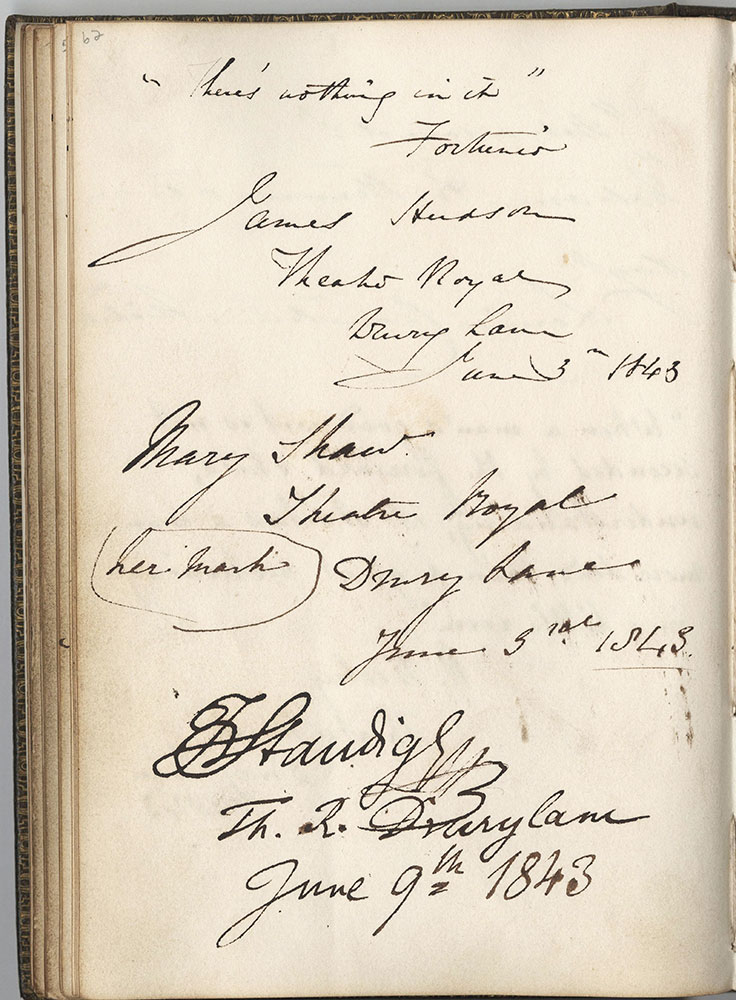 62
"There's nothing in it"
Fortunio
James Hudson
Theatre Royal
Drury Lane
June 3rd 1843
Mary Shaw
Theatre Royal
her mark Drury Lane
June 3rd 1843.
Staudigl
Th. R. Drurylane
June 9th 1843